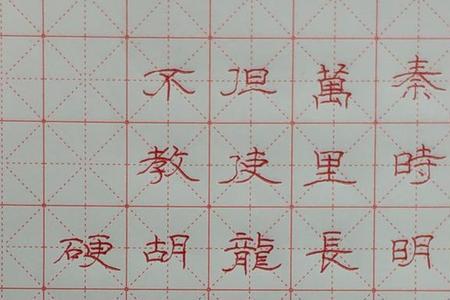 秦時明
萬里長
但使龍
不教胡
硬